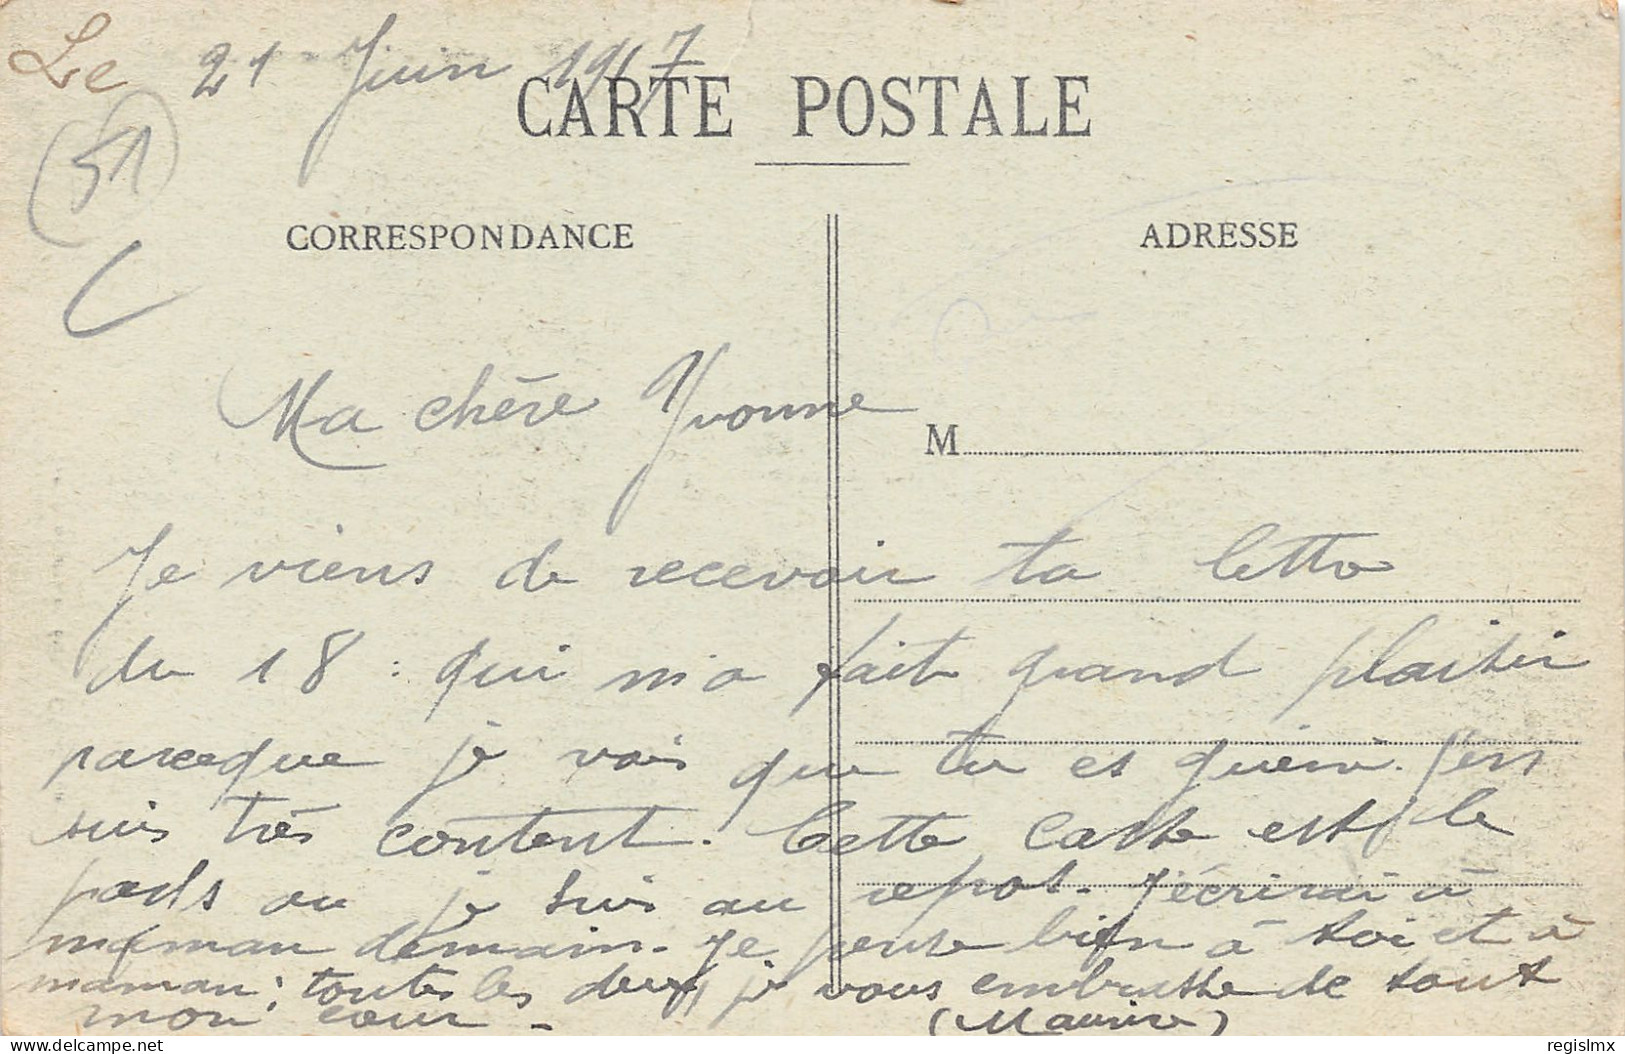 Le 21 Juin 1917
CARTE POSTALE
51
CORRESPONDANCE
ADRESSE
Ma chère Yvonne
M
Je viens de recevoir ta lettre
du 18 : qui m'a fait grand plaisir
parceque je vois que tu es guérie. J'en
suis très content. Cette carte est le
pads ou je suis au repos. J'écrirai à
maman demain. Je pense bien à toi et à
maman ; toutes les deux je vous embrasse de tout
mon cœur. (Maurice)
delcampe.net
regislmx